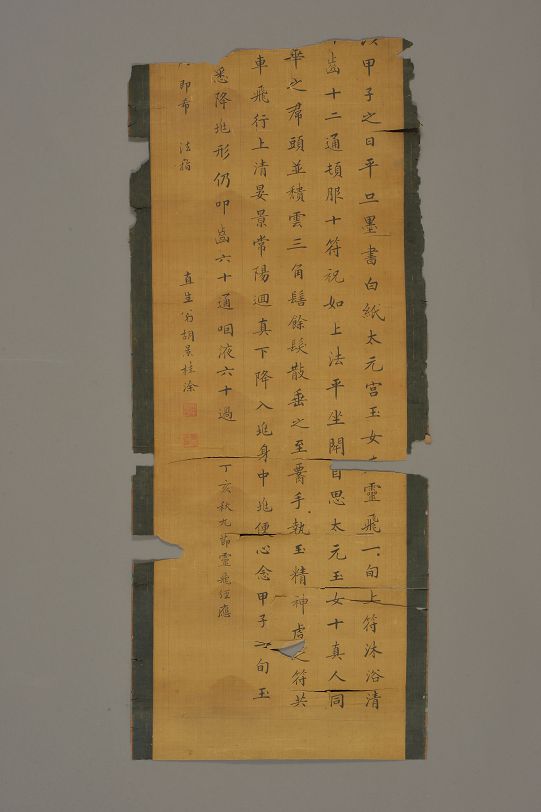 甲子之日平旦墨書白紙太元宮玉女靈飛一旬上符沐浴清
齒十二通頓服十符祝如上法平坐閉目思太元玉女十真人同
華之帬頭並穨雲三角髻餘髮散垂之至腰手執玉精神虎之符共
車飛行上清晏景常陽迴真下降入兆身中兆便心念甲子之旬玉
悉降兆形仍叩齒六十通咽液六十過
丁亥秋九節靈飛經應
即希 法指
直生胡景桂涂